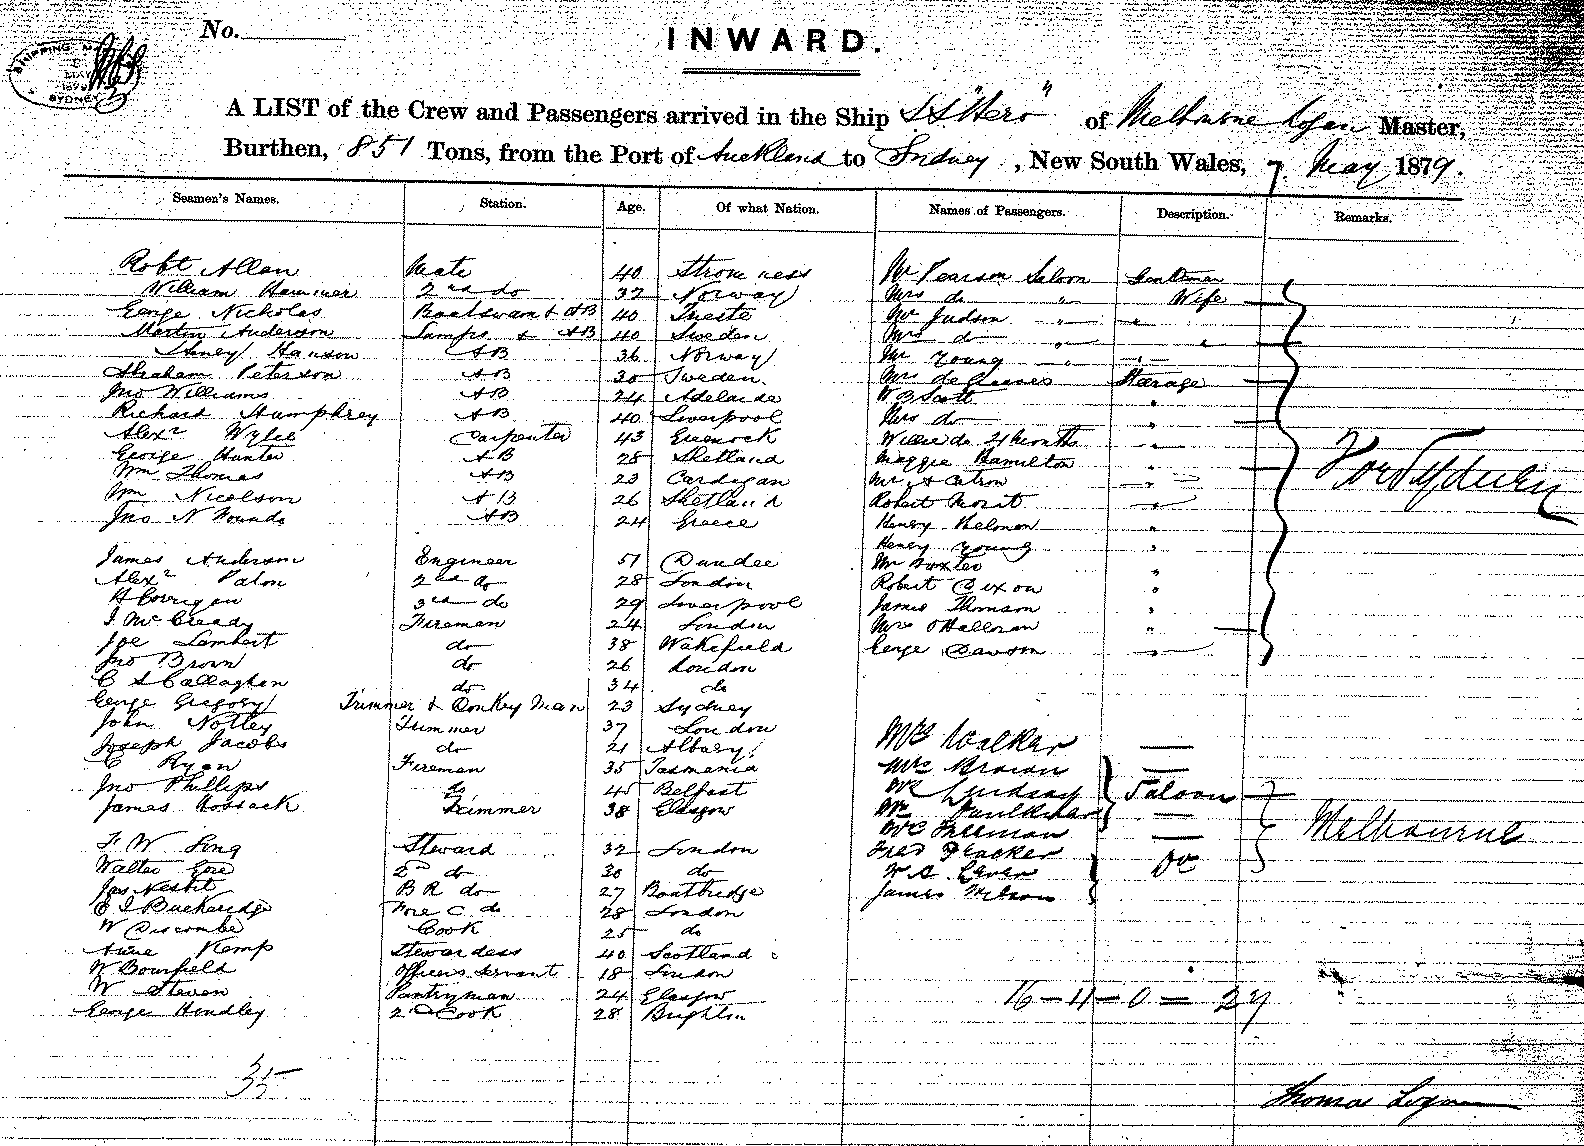 No.
INWARD.
SHIPPING
MAY
1879
SYDNEY
A LIST of the Crew and Passengers arrived in the Ship SS "Hero" of Melbourne Logan Master,
Burthen, 851 Tons, from the Port of Auckland to Sydney, New South Wales, 7 May 1879.
Seamen's Names. Station. Age. Of what Nation. Names of Passengers. Description. Remarks.
Robt Allan Mate 40 Stromness Mr Pearson Saloon Gentleman
William Hammer 2nd do 32 Norway Mrs do " Wife
George Nicholas Boatswain & AB 40 Trieste Mr Judson " "
Martin Anderson Lamps & AB 40 Sweden Mrs do " "
Hanson AB 36 Norway Mr Young "
Abraham Peterson AB 30 Sweden. Mrs Steerage
Jno Williams AB 24 Adelaide W Scott "
Richard Humphrey AB 40 Liverpool Mrs do "
Alexr Wylie Carpenter 43 Greenock Willie do months "
George Hunter AB 28 Shetland Maggie Hamilton "
Wm Thomas AB 23 Cardigan Mr A Catron "
Wm Nicolson AB 26 Shetland Robert "
Jno N AB 24 Greece Henry "
Henry Young "
For Sydney
James Anderson Engineer 51 Dundee Mr "
Alexr Paton 2nd do 28 London Robert Dixon "
H Corrigan 3rd do 29 Liverpool James Thomson "
J McCready Fireman 24 London Mrs O'Halloran "
Joe Lambert do 38 Wakefield George Dawson "
Jno Brown do 26 London
C Callaghan do 34 do
George Gregory Trimmer & Donkey Man 23 Sydney
John Notley Trimmer 37 London
Joseph Jacobs do 21 Albury Mrs Walker
C Ryan Fireman 35 Tasmania Mrs Brown
Jno Phillips do 45 Belfast Mr Lindsay Saloon
James Hossack Trimmer 38 Glasgow Mr Faulkner
Mr Freeman
Melbourne
F W King Steward 32 London Fred
Walter Gore 2nd do 30 do W A do
Jas Nesbit B R do 27 Coatbridge James Wilson
E J Buckeridge Fore C do 28 London
W Discombe Cook 25 do
Kemp Stewardess 40 Scotland
W Bournfield Officers Servant 18 London
W Steven Pantryman 24 Glasgow
George Hindley 2nd Cook 28 Brighton
16 - 11 - 0 = 27
35
Thomas Logan